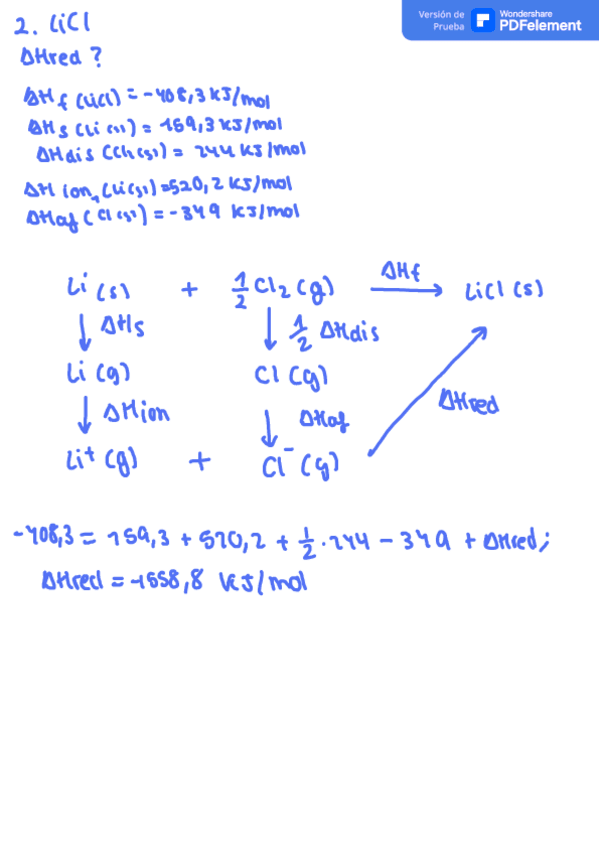 Versión de Prueba Wondershare PDFelement
2. LiCl
ΔHred ?
ΔHf (LiCl) = -408,3 KJ/mol
ΔHs (Li (s)) = 159,3 KJ/mol
ΔHdis (Cl2 (g)) = 244 KJ/mol
ΔHion1 (Li(g)) = 520,2 KJ/mol
ΔHaf (Cl (g)) = -349 KJ/mol
Li (s) + 1/2 Cl2 (g) → ΔHf LiCl (s)
↓ ΔHs ↓ 1/2 ΔHdis
Li (g) Cl (g)
↓ ΔHion ↓ ΔHaf ΔHred
Li+ (g) + Cl- (g)
-408,3 = 159,3 + 520,2 + 1/2 · 244 - 349 + ΔHred;
ΔHred = -1558,8 KJ/mol